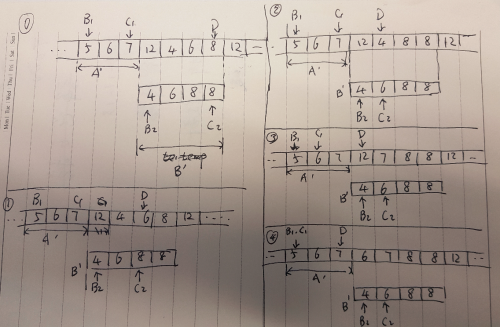 0
B₁ C₁ D
... 5 6 7 12 4 6 8 12
A'
4 6 8 8
B₂ C₂
B'
1
B₁ C₁ D
... 5 6 7 12 4 6 8 12 ....
A'
B' 4 6 8 8
B₂ C₂
2
B₁ C₁ D
... 5 6 7 12 4 8 8 12 ...
A'
B' 4 6 8 8
B₂ C₂
3
B₁ C₁ D
.. 5 6 7 12 7 8 8 12 ..
A'
B' 4 6 8 8
B₂ C₂
4
B₁.C₁ D
.. 5 6 7 6 7 8 8 12 ..
A'
B' 4 6 8 8
B₂ C₂